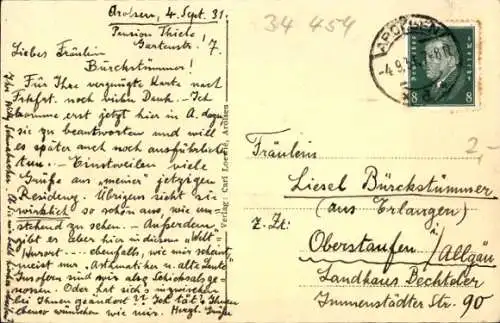 Arolsen, 4. Sept. 31.
Pension Thiele!
Gartenstr. 7.
Liebes Fräulein
Bürckstümmer!
Für Ihre vergnügte Karte nach
Frkfrt. noch vielen Dank. Ich
komme erst jetzt hier in A. dazu,
sie zu beantworten und will
es später auch noch ausführlicher
tun. - Einstweilen viele
Grüße aus "meiner" jetzigen
Residenz. Übrigens sieht sie
wirklich so schön aus, wie um-
stehend zu sehen. - Außerdem
gibt es aber hier in diesem "Welt-
Kurort" ebenfalls, wie mir scheint
meist nur "Asthmatiker u. alte Leute
Insofern sind mir also Schicksalsge-
nossen. Oder hat sich's inzwischen
bei Ihnen geändert?? Ich tät's Ihnen
ebenso wünschen wie mir. Herzl. Grüße
Verlag: Carl Arolsen
34 454
AROLSEN
-4.9.31
Deutsches Reich
8 8
2,-
Fräulein
Liesel Bürckstümmer
(aus Erlangen)
z. Zt:
Oberstaufen / Allgäu
Landhaus Bechteler
Immenstädter Str. 90